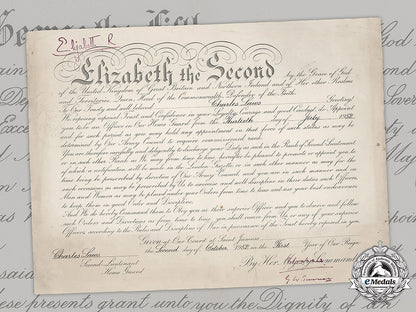 Elizabeth R
Elizabeth the Second by the Grace of God
of the United Kingdom of Great Britain and Northern Ireland and of Her other Realms
and Territories Queen, Head of the Commonwealth, Defender of the Faith.
well beloved Charles Laws Greeting!
We reposing especial Trust and Confidence in your Loyalty, Courage and good Conduct, do Appoint
you to be an Officer in Our Home Guard from the day of July 1952
and for such period as you may hold any appointment in that force of such status as may be
determined by Our Army Council to require commissioned rank.
You are therefore carefully and diligently to discharge your Duty as such in the Rank of Second Lieutenant
or in such other Rank as We may from time to time hereafter be pleased to promote or appoint you to
of which a notification will be made in the London Gazette or in such other manner as may for the
time being be prescribed by direction of Our Army Council and you are in such manner and on
such occasions as may be prescribed by Us to exercise and well discipline in their duties such Officers,
Men and Women as may be placed under your Orders from time to time and use your best endeavours
to keep them in good Order and Discipline.
And We do hereby Command them to Obey you as their superior Officer and you to observe and follow
such Orders and Directions as from time to time you shall receive from Us or any of your superior
Officers according to the Rules and Discipline of War in pursuance of the Trust hereby reposed in you.
Given at Our Court of Saint James's
the Second day of October 1952 in the First Year of Our Reign
Charles Laws
Second Lieutenant
Home Guard
By Her
eMedals